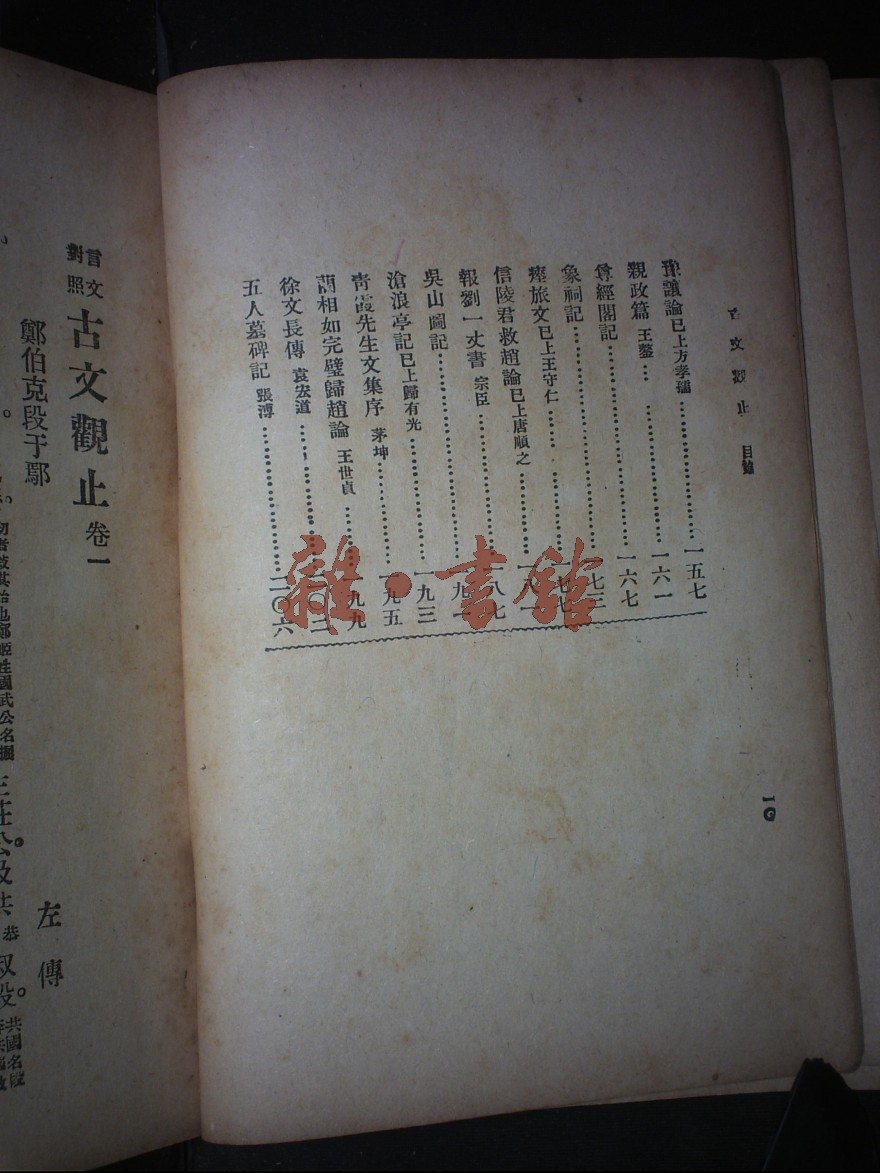 古文觀止 目錄
一〇
豫讓論 已上方孝孺………一五七
親政篇 王鏊………一六一
尊經閣記………一六七
象祠記………一七三
瘞旅文 已上王守仁………一七七
信陵君救趙論 已上唐順之
報劉一丈書 宗臣………一八七
吳山圖記………一九一
滄浪亭記 已上歸有光………一九三
青霞先生文集序 茅坤………一九五
藺相如完璧歸趙論 王世貞………一九九
徐文長傳 袁宏道………二〇二
五人墓碑記 張溥………二〇六
雜·書館
言文對照 古文觀止 卷一
鄭伯克段于鄢
左傳